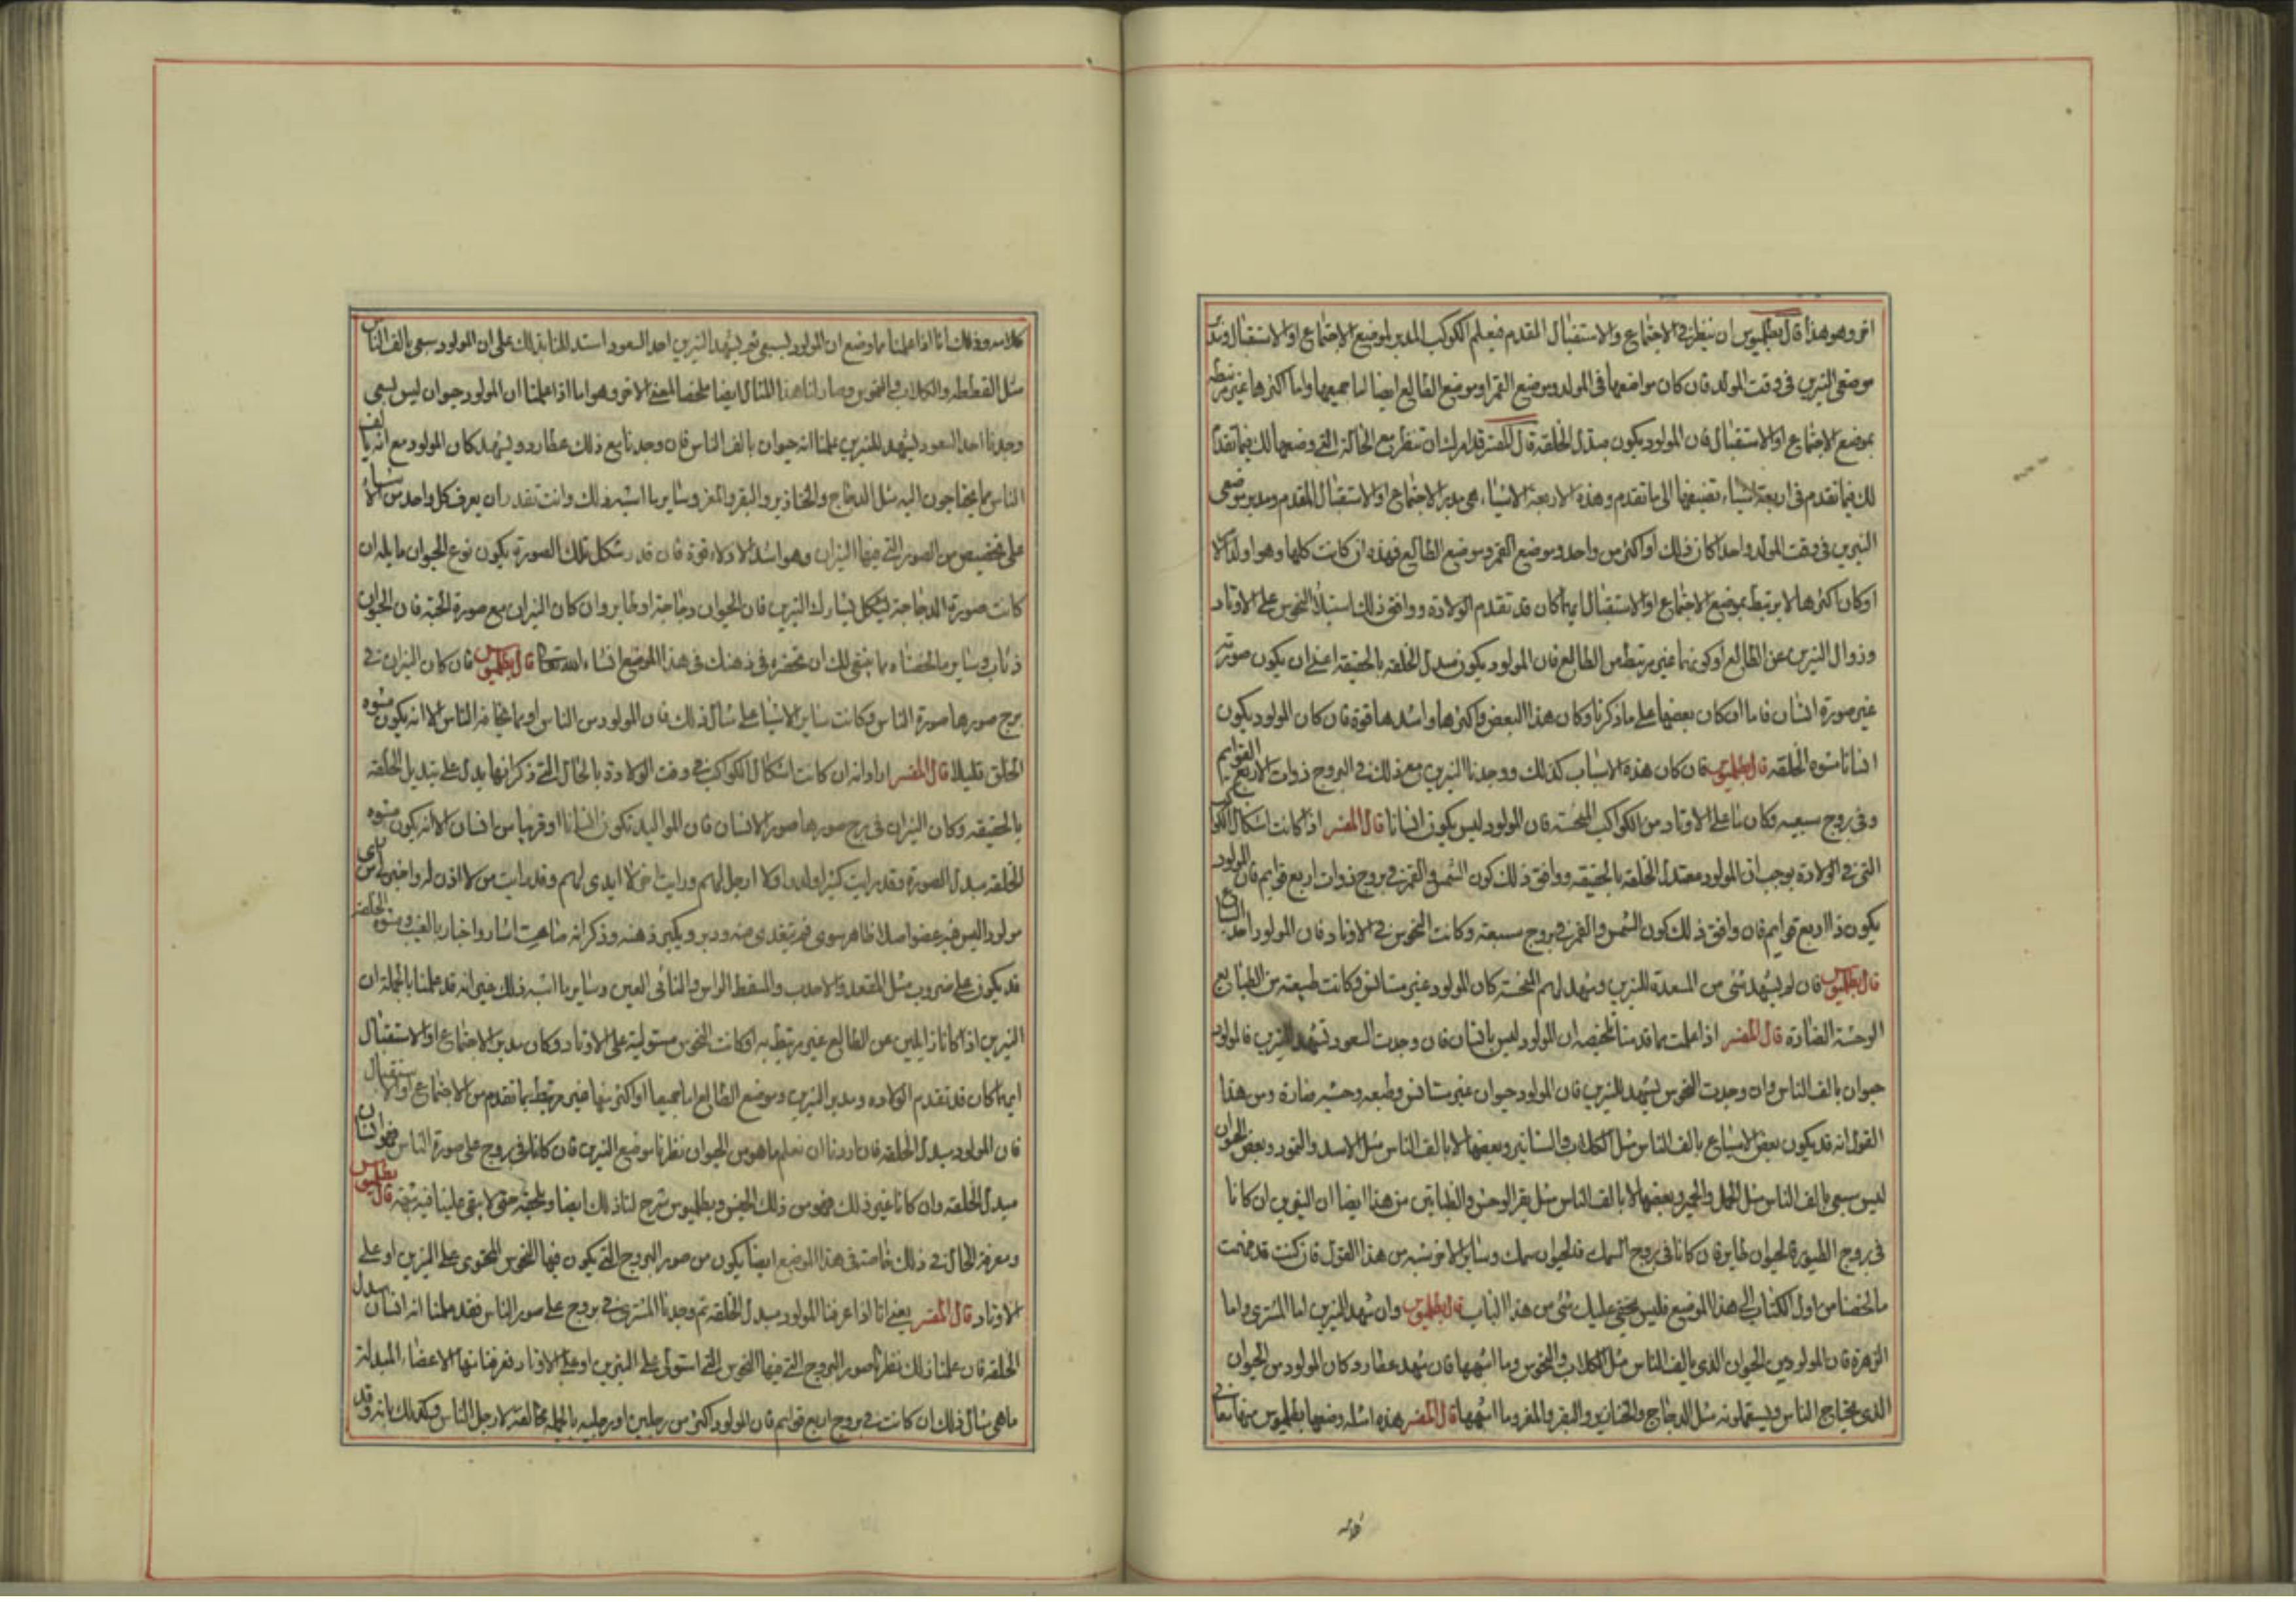 اخر وهو هذا قال بطلميوس ان ننظر في الاجتماع والاستقبال المقدم فيعلم الكوكب المدبر لموضع الاجتماع او الاستقبال
موضعي النيرين في وقت المولد فان كان مواضعها في المولد وموضع القمر او موضع الطالع ايضا اما جميعها واما اكثرها غير مرتبطة
بموضع الاجتماع او الاستقبال فان المولود يكون مبدل الخلقة قال المفسر قد امرك ان تنظر مع الحالة التي وضعها لك فيما تقدم
لك فيما تقدم في اربعة اشياء تضيفها الى ما تقدم وهذه الاربعة الاشياء هي مدبر الاجتماع او الاستقبال المقدم ومدبر موضعي
النيرين في وقت المولد واحدا كان ذلك او اكثر من واحد وموضع القمر وموضع الطالع فهذه ان كانت كلها
او كان اكثرها لا يرتبط بموضع الاجتماع او الاستقبال ايهما كان قد تقدم الولادة ووافق ذلك استيلاء النحوس على الاوتاد
وزوال النيرين عن الطالع او كونهما غير مرتبط من الطالع فان المولود يكون مبدل الخلقة بالحقيقة اعني ان يكون صورته
غير صورة انسان فاما ان كان بعضها على ما ذكرنا وكان هذا البعض واكثرها واشدها قوة فان كان المولود يكون
انسانا مشوه الخلقة قال بطلميوس فان كان هذه الاسباب كذلك ووجدنا النيرين مع ذلك في البروج ذوات الاربع القوايم
وفي بروج سبعيه وكان على الاوتاد من الكواكب المنحسة فان المولود ليس يكون انسانا قال المفسر اذا كانت اشكال الكواكب
التي في الولادة يوجب ان المولود الخلقة بالحقيقه ووافق ذلك كون الشمس والقمر في بروج ذوات اربع قوايم فان المولود
يكون ذا اربع قوايم فان وافق ذلك كون الشمس والقمر في بروج سبعيه وكانت النحوس في الاوتاد فان المولود احد السباع
قال بطلميوس فان لم يشهد شئ من المسعدة للنيرين وشهد لهم المنحسة كان المولود غير مستانس وكانت طبيعته من الطبايع
الوحشة الضارة قال المفسر اذا علمت بما قدمنا تلخيصه ان المولود ليس بانسان فان وجدت السعود تشهد النيرين فالمولود
حيوان يالف الناس وان وجدت النحوس يشهد للنيرين فان المولود حيوان غير مستانس وطبعه وحشيه ضارة ومن هذا
القول انه قد يكون بعض السباع يالف الناس مثل الكلاب والسنانير وبعضها لا يالف الناس مثل الاسد والنمور وبعض الحيوان
ليس سبعي يالف الناس مثل الجمل والحمير وبعضها لا يالف الناس مثل بقر الوحش والظبا من هذا ايضا ان النيرين ان كانا
في بروج الطيور فالحيوان طاير فان كانا في بروج السمك فالحيوان سمك وساير الاخر يشبه من هذا القول فان كنت قد فهمت
ما لخصنا من اول الكتاب الى هذا الموضع فليس يخفى عليك شئ من هذا الباب قال بطلميوس وان شهد النيرين اما المشتري واما
الزهرة فان المولود من الحيوان الذي يالف الناس مثل الكلاب وما اشبهها فان شهد عطارد كان المولود من الحيوان
الذي يحتاج الناس ويستعملونه مثل الدجاج والخنازير والبقر والمعز وما اشبهها قال المفسر هذه امثله وضعها بطلميوس
كلامه وذلك انا اذا علمنا بما وضع ان المولود ليس سبعي ثم يشهد النيرين احد السعود استدللنا بذلك على ان المولود سبعي يالف الناس
مثل القطط والكلاب وصار لنا هذا المثال ايضا ملخصا المعنى الاخر وهو اما اذا علمنا ان المولود حيوان ليس سبعي
وجدنا احد السعود يشهد للنيرين علمنا انه حيوان يالف الناس فان وجدنا مع ذلك عطارد ويشهد كان المولود مع انه يالف
الناس مما يحتاجون اليه مثل الدجاج والخنازير والبقر والمعز وساير ما اشبه ذلك وانت تقدر ان يعرف كل واحد من الاشياء
على تخصيص من الصور التي فيها النيران وهو اشد الادلاء قوة فان قدر شكل تلك الصورة يكون نوع الحيوان
كانت صورة الدجاجة يشكل يشارك النيرين فان الحيوان دجاجة او طاير وان كان النيران مع صورة الحية فان الحيوان
وساير ما لخصناه مما ينبغي لك ان تحضره في ذهنك في هذا الموضع انشاء الله تعالى قال بطلميوس فان كان النيران في
برج صورها صورة الناس وكانت ساير الاشيا على مثال ذلك فان المولود من الناس الا انه يكون مشوه
الخلق قليلا قال المفسر اراد انه ان كانت اشكال الكواكب في وقت الولادة بالحال التي ذكر انها يدل على تبديل الخلقة
بالحقيقه وكان النيران في برج صورها صور الانسان فان المواليد تكون انسانا او قريبا من انسان الا انه يكون مشوه
الخلقة مبدل الصورة وقد رايت كثيرا ولدوا لا ارجل لهم ورايت اخر لا ايدي لهم وقد رايت من لا اذن له واخبرني
مولودا ليس فيه عضو اصلا ظاهر سوى فم يتغذى منه ودبر ومشوه الخلقة
قد يكون على ضروب مثل المقعد والاحدب والمسقط الراس والناتى العين وساير ما اشبه ذلك غير انه قد علمنا بالجملة ان
النيرين اذا كانا زايلين عن الطالع غير مرتبط به او كانت النحوس مستولية على الاوتاد وكان مدبر الاجتماع او الاستقبال
ايهما كان قد تقدم الولاده ومدبر النيرين وموضع الطالع اما جميعها او اكثرها غير مرتبط بما تقدم من الاجتماع او الاستقبال
فان المولود مبدل الخلقه فان اردنا ان نعلم ما هو من الحيوان نظرنا موضع النيرين فان كانا في بروج على صورة الناس فهو انسان
مبدل الخلقه وان كانا غير ذلك فهو من ذلك الجنس وبطلميوس شرح لنا ذلك ايضا حتى لا يبقى علينا فيه شبهة قال بطلميوس
ومعرفة الحال في ذلك خاصة في هذا الموضع ايضا يكون من صور البروج التي يكون فيها النحوس المحتوى على النيرين او على
الاوتاد قال المفسر يعني انا اذا عرفنا المولود مبدل الخلقه ثم وجدنا المشتري في بروج على صور الناس فقد علمنا انه انسان مبدل
الخلقه فان علمنا ذلك نظرنا صور البروج التي فيها النحوس التي استولى على النيرين او على الاوتاد فعرفنا منها الاعضاء المبدلة
ما هي مثال ذلك ان كانت في بروج اربع قوايم فان المولود اكثر من رجلين او رجليه بالجملة مخالفة لارجل الناس وكذلك